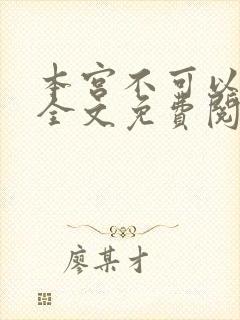 本宫不可以
全文免费阅
廖某才